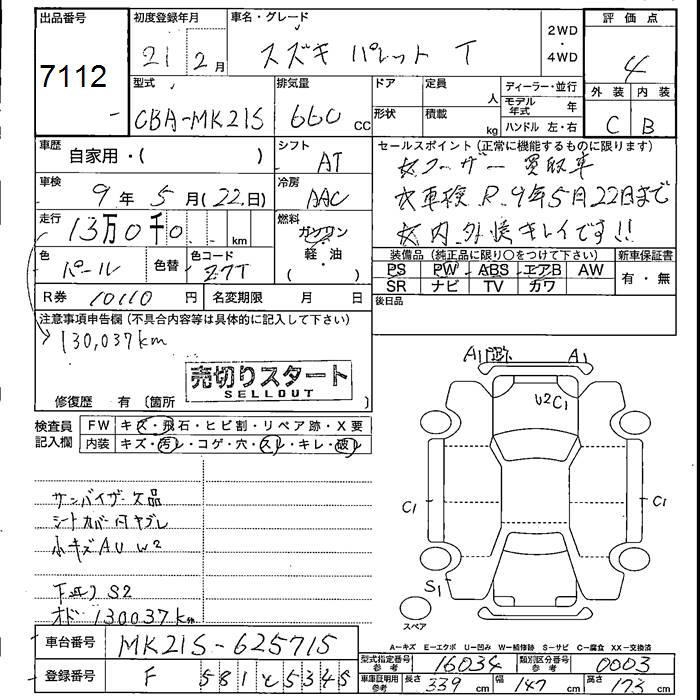 出品番号
7112
初度登録年月
21 2月
車名・グレード
スズキ パレット T
2WD
・
4WD
評価点
4
型式
CBA-MK21S
排気量
660 cc
ドア
形状
定員
人
積載
kg
ディーラー・並行
モデル年式 年
ハンドル 左・右
外装 内装
C B
車歴
自家用・( )
シフト
AT
セールスポイント (正常に機能するものに限ります)
ユーザー買取車
車検 R.9年5月22日まで
内.外装キレイです!!
車検
9年5月(22日)
冷房
AAC
走行
13万0千0 km
燃料
ガソリン
軽・油
( )
色
パール
色替
色コード
Z7T
装備品 (純正品に限り○をつけて下さい)
PS PW ABS エアB AW
SR ナビ TV カワ
新車保証書
有・無
R券 10110 円
名変期限 月 日
後日品
注意事項申告欄 (不具合内容等は具体的に記入して下さい)
130,037km
売切りスタート
SELLOUT
修復歴 有 〔箇所 〕
検査員記入欄
FW キズ・飛石・ヒビ割・リペア跡・X要
内装 キズ・汚レ・コゲ・穴・スレ・キレ・破レ
サンバイザー欠品
シートカバー内ヤブレ
小キズAU W2
下廻りS2
オド 130037km
A1 A1
U2 C1
C1 C1
S1
スペア
A－キズ E－エクボ U－凹み W－補修跡 S－サビ C－腐食 XX－交換済
車台番号 MK21S-625715
登録番号 F 581 と 5345
型式指定番号 参考 16034
類別区分番号 参考 0003
車庫証明用 参考 長さ 339 cm 幅 147 cm 高さ 173 cm